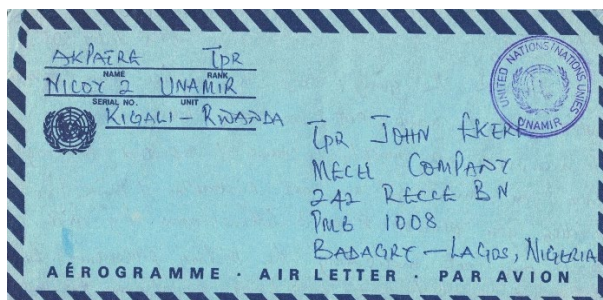 AKPATRE TPR
NAME RANK
NICOY 2 UNAMIR
SERIAL NO. UNIT
KIGALI - RWANDA
UNITED NATIONS/NATIONS UNIES
UNAMIR
TPR JOHN EKERE
MECH COMPANY
242 RECCE BN
PMB 1008
BADAGRY - LAGOS, NIGERIA
AÉROGRAMME · AIR LETTER · PAR AVION